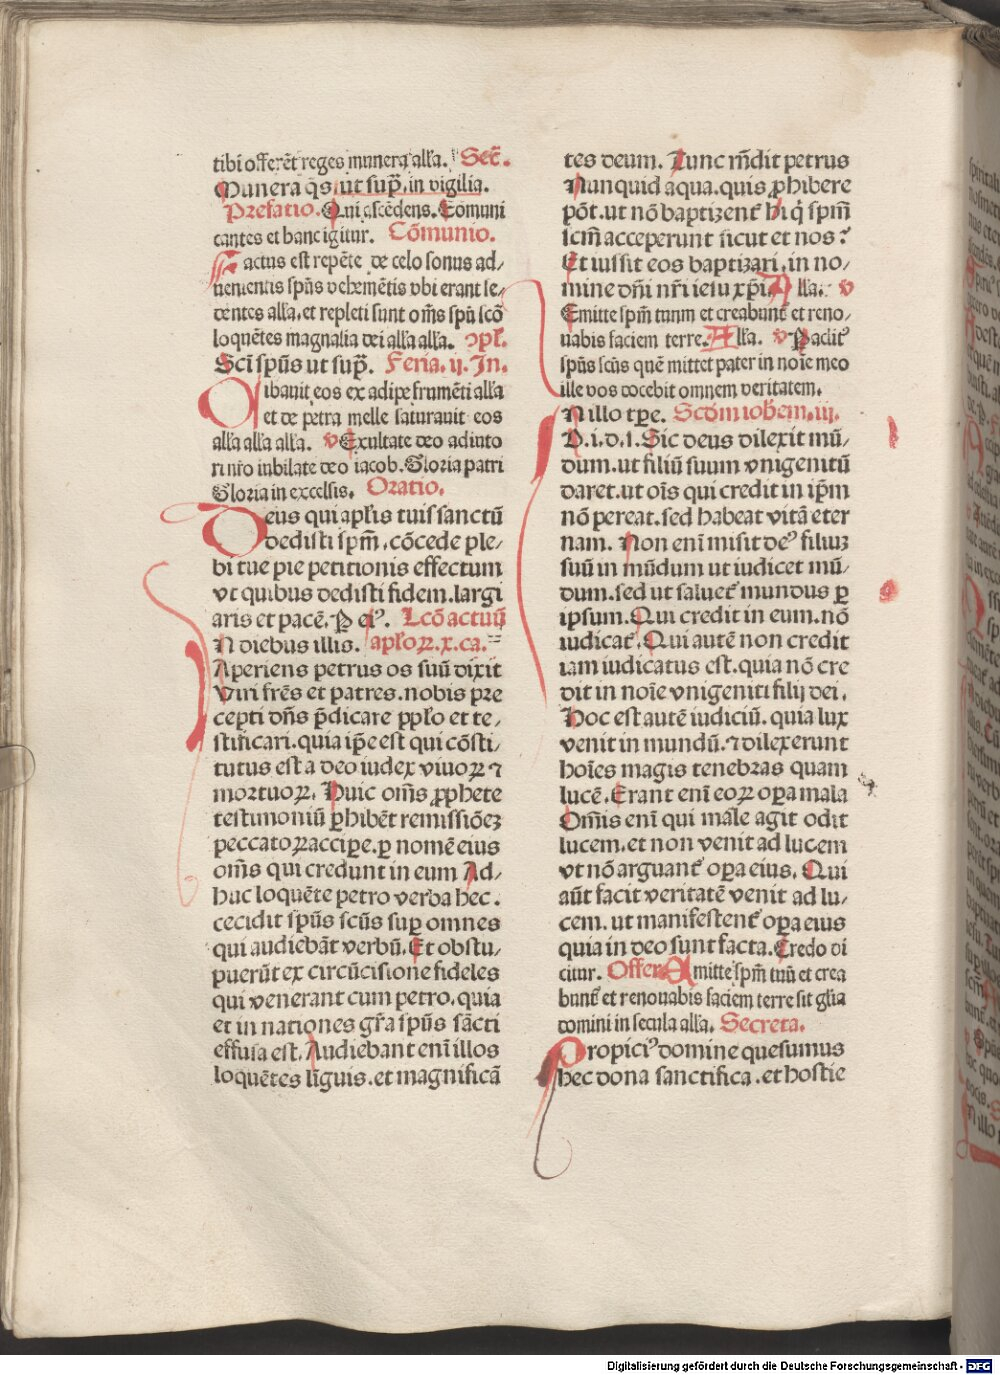 tibi offerēt reges munera alľa. Secͬ.
Munera q̄s ut suꝑ. in vigilia.
Prefatio. Qui ascēdens. Comuni
cantes et hanc igitur. Cōmunio.
Factus est repēte de celo sonus ad⸗
uenientis spūs vehemētis vbi erant se⸗
dentes alľa. et repleti sunt om̄s spū scō
loquētes magnalia dei alľa alľa. Ↄpľ.
Scī spūs ut suꝑ. Feria. ij. In.
Cibauit eos ex adipe frumēti alľa
et de petra melle saturauit eos
alľa alľa alľa. v Exultate deo adiuto
ri nrō iubilate deo iacob. Gloria patri
Gloria in excelsis. Oratio.
Deus qui apľis tuis sanctū
dedisti spm̄. cōcede ple⸗
bi tue pie petitionis effectum
vt quibus dedisti fidem. largi
aris et pacē. P eiꝰ. Lcō actuū
In diebus illis. apľoꝝ. x. ca.
Aperiens petrus os suū dixit
Viri frēs et patres. nobis pre
cepti dn̄s p̄dicare pplo et te⸗
stificari. quia ip̄e est qui cōsti⸗
tutus est a deo iudex viuoꝝ ⁊
mortuoꝝ. Huic om̄s ꝓphete
testimoniū ꝑhibēt remissiōeꝫ
peccatoꝝ accipe. ꝑ nomē eius
om̄s qui credunt in eum Ad⸗
huc loquēte petro verba hec.
cecidit spūs scūs suꝑ omnes
qui audiebāt verbū. Et obstu⸗
puerūt ex circūcisione fideles
qui venerant cum petro. quia
et in nationes gr̄a spūs sācti
effusa est. Audiebant enī illos
loquētes līguis. et magnificā
tes deum. Tunc rn̄dit petrus
Nunquid aqua. quis ꝓhibere
pōt. ut nō baptizentͬ hi q̇ spm̄
scm̄ acceperunt sicut et nos?
Et iussit eos baptizari. in no⸗
mine dn̄i nr̄i iesu xp̄i. Alľa. v
Emitte spm̄ tuum et creabuntͬ et reno⸗
uabis faciem terre. Alľa. v Paclitꝰ
spūs scūs quē mittet pater in noīe meo
ille vos docebit omnem veritatem.
In illo tꝑe. Scďm ioħem. iij.
D. i. d. s. Sic deus dilexit mū⸗
dum. ut filiū suum vnigenitū
daret. ut oīs qui credit in ip̄m
nō pereat. sed habeat vitā eter
nam. Non enī misit deꝰ filiuꝫ
suū in mūdum ut iudicet mū⸗
dum. sed ut saluetͬ mundus ꝑ
ipsum. Qui credit in eum. nō
iudicatͬ. Qui autē non credit
iam iudicatus est. quia nō cre
dit in noīe vnigeniti filij dei.
Hoc est autē iudiciū. quia lux
venit in mundū. ⁊ dilexerunt
hoīes magis tenebras quam
lucē. Erant enī eoꝝ oꝑa mala
Omīs enī qui male agit odit
lucem. et non venit ad lucem
vt nō arguantͬ oꝑa eius. Qui
aūt facit veritatē venit ad lu⸗
cem. ut manifestentͬ oꝑa eius
quia in deo sunt facta. Credo di
citur. Offer. Amitte spm̄ tuū et crea
buntͬ et renouabis faciem terre sit glīa
domini in secula alľa. Secreta.
Propiciꝰ domine quesumus
hec dona sanctifica. et hostie
Digitalisierung gefördert durch die Deutsche Forschungsgemeinschaft - DFG